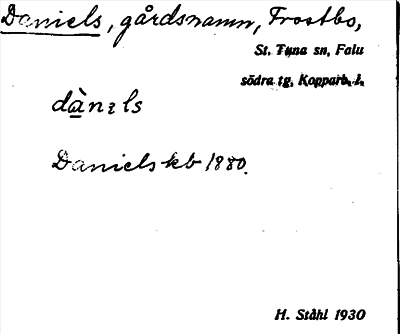 Daniels, gårdsnamn, Frostbo,
St. Tuna sn, Falu
södra tg, Kopparb. l.
dànɛls
Daniels kb 1880.
H. Ståhl 1930